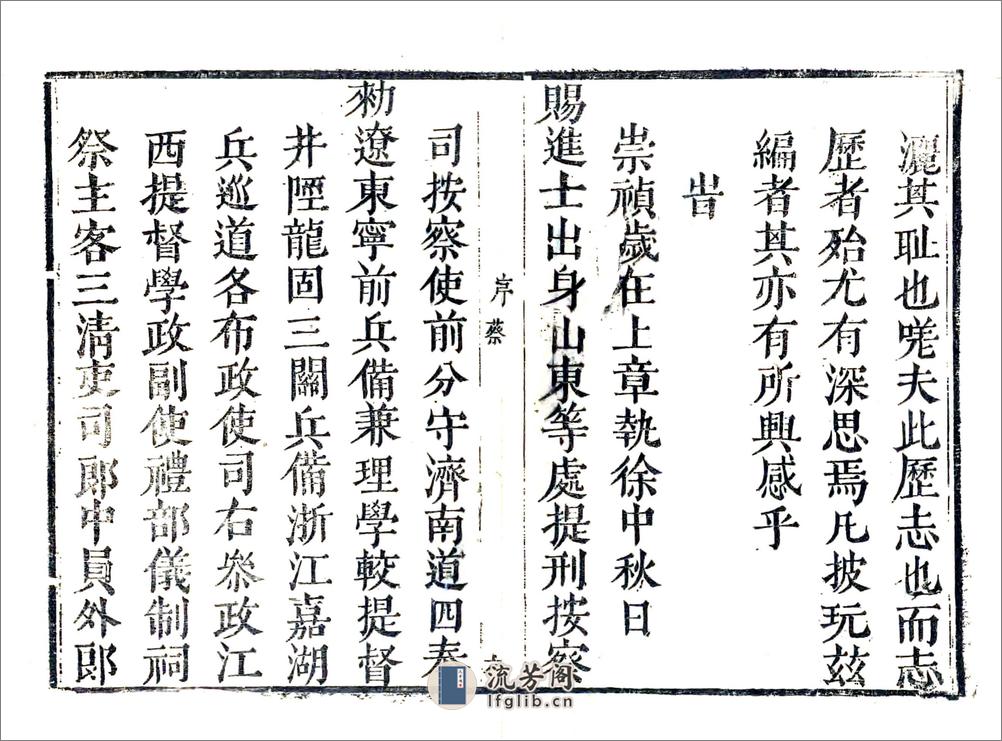 灑其耻也嘵夫此歷志也而志
歷者殆尤有深思焉凡披玩茲
編者其亦有所興感乎
旹
崇禎歲在上章執徐中秋日
賜進士出身山東等處提刑按察
序 蔡
司按察使前分守濟南道四奉
勑遼東寧前兵備兼理學較提督
井陘龍固三關兵備浙江嘉湖
兵巡道各布政使司右叅政江
西提督學政副使禮部儀制祠
祭主客三淸吏司郎中員外郎
流芳阁
lfglib.cn